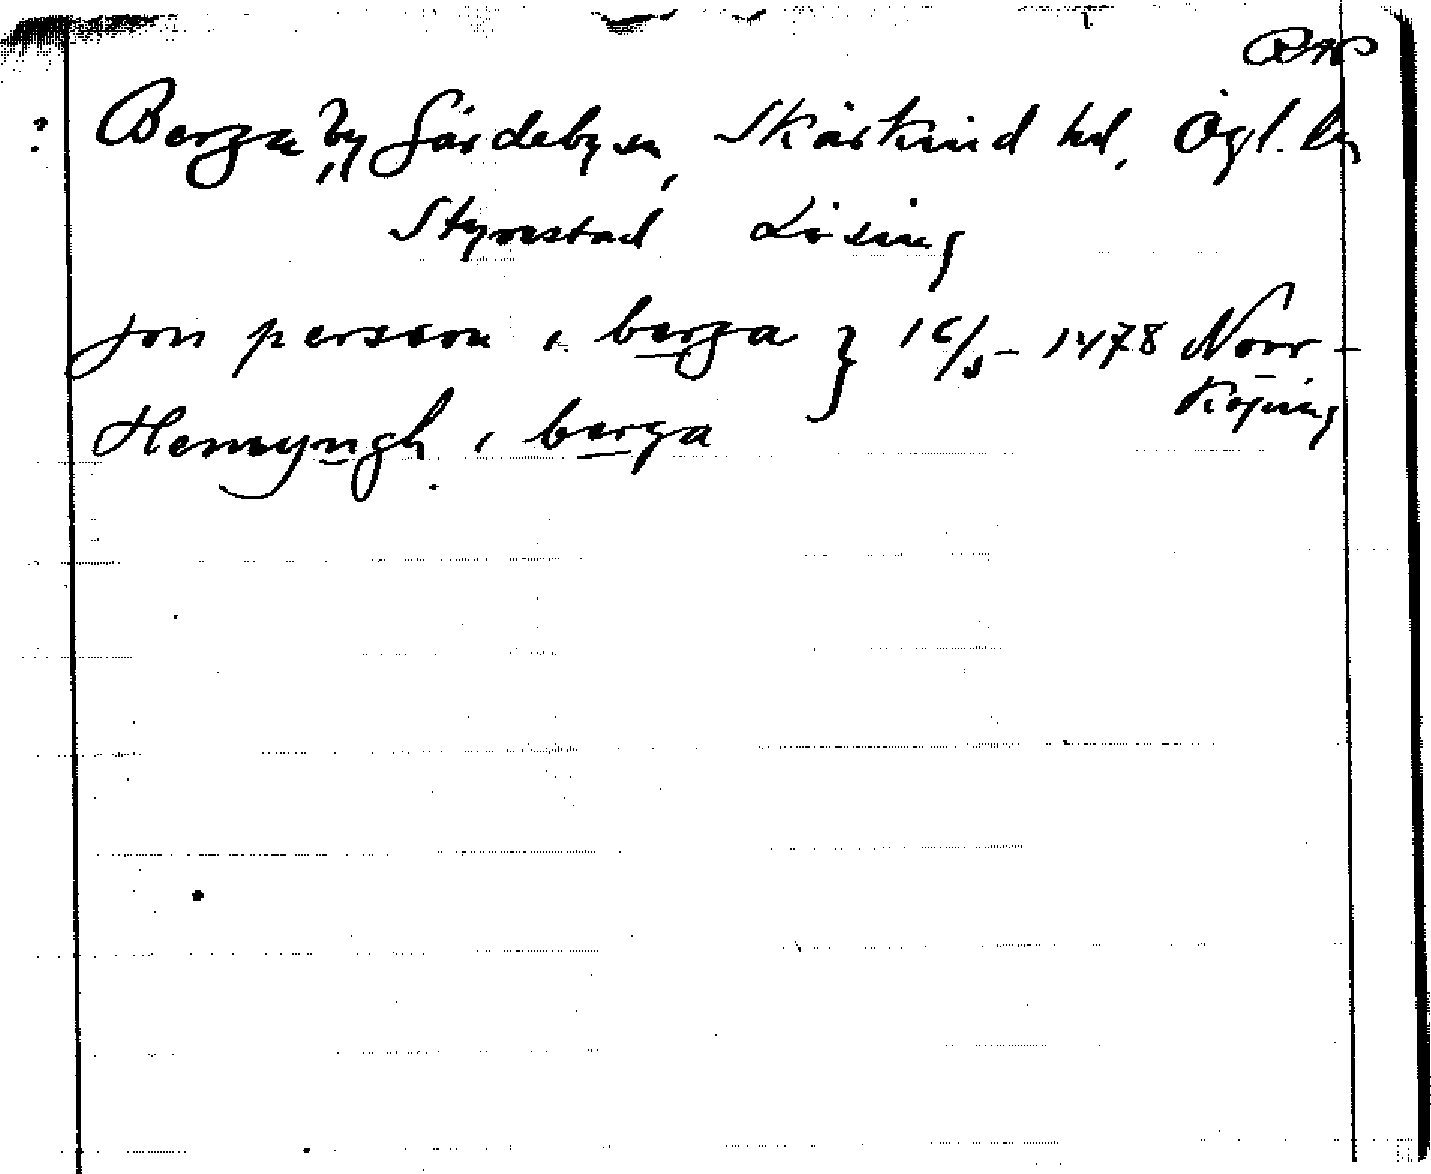 : Berga, by Gårdeby sn, Skärkind hd, Ögl. ln
Styrestad Lösing
jon persson i berga } 16/5 - 1478 Norr-
köping
Hemyngh i berga